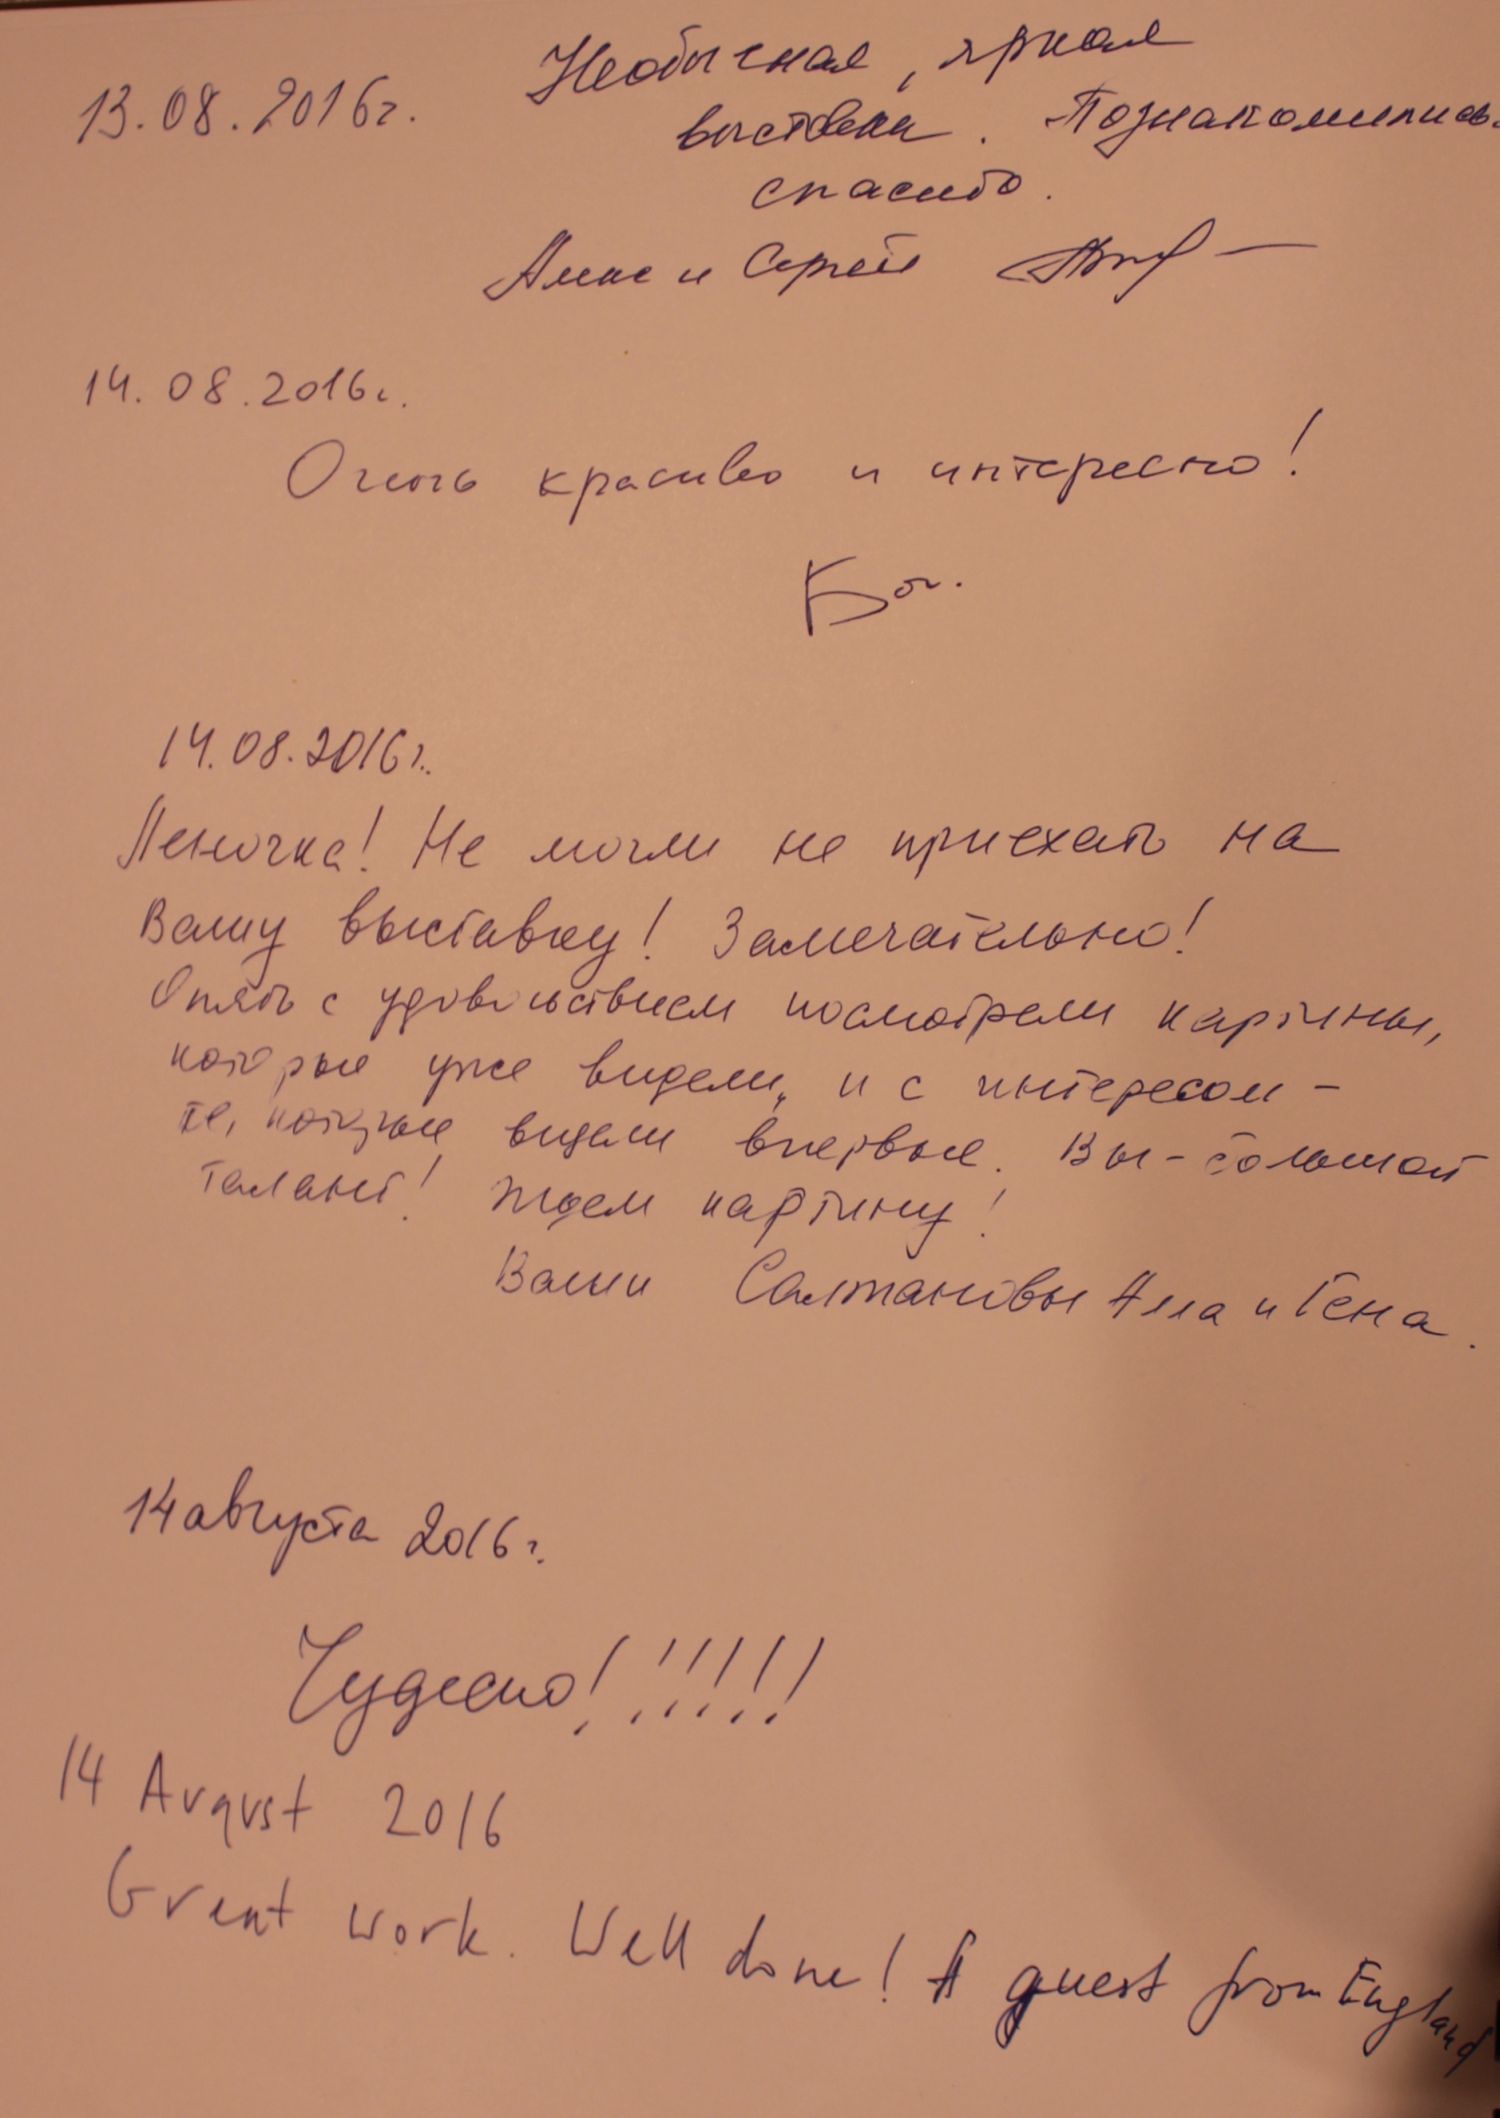 13.08.2016г.
Необычная, яркая
выставка. Познакомились.
спасибо.
и Сергей
14.08.2016г.
Очень красиво и интересно!
14.08.2016г.
Леночка! Не могли не приехать на
Вашу выставку! Замечательно!
Опять с удовольствием посмотрели картины,
которые уже видели, и с интересом -
те, которые видели впервые. Вы - большой
талант! Ждем картину!
Ваши Салтановы Алла и Гена.
14 августа 2016г.
Чудесно!!!!!!
14 August 2016
Great work. Well done! A guest from England